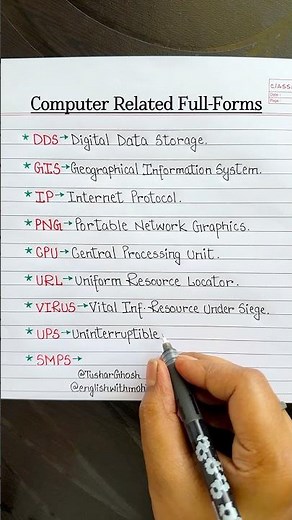 CLASS
Date :
Page :
Computer Related Full-Forms
* DDS→Digital Data Storage.
* GIS→Geographical Information System.
* IP→Internet Protocol.
* PNG→Portable Network Graphics.
* CPU→Central Processing Unit.
* URL→Uniform Resource Locator.
* VIRUS→Vital Inf. Resource Under Siege.
* UPS→Uninterruptible
* SMPS→
@TusharGhosh
@englishwithmoh